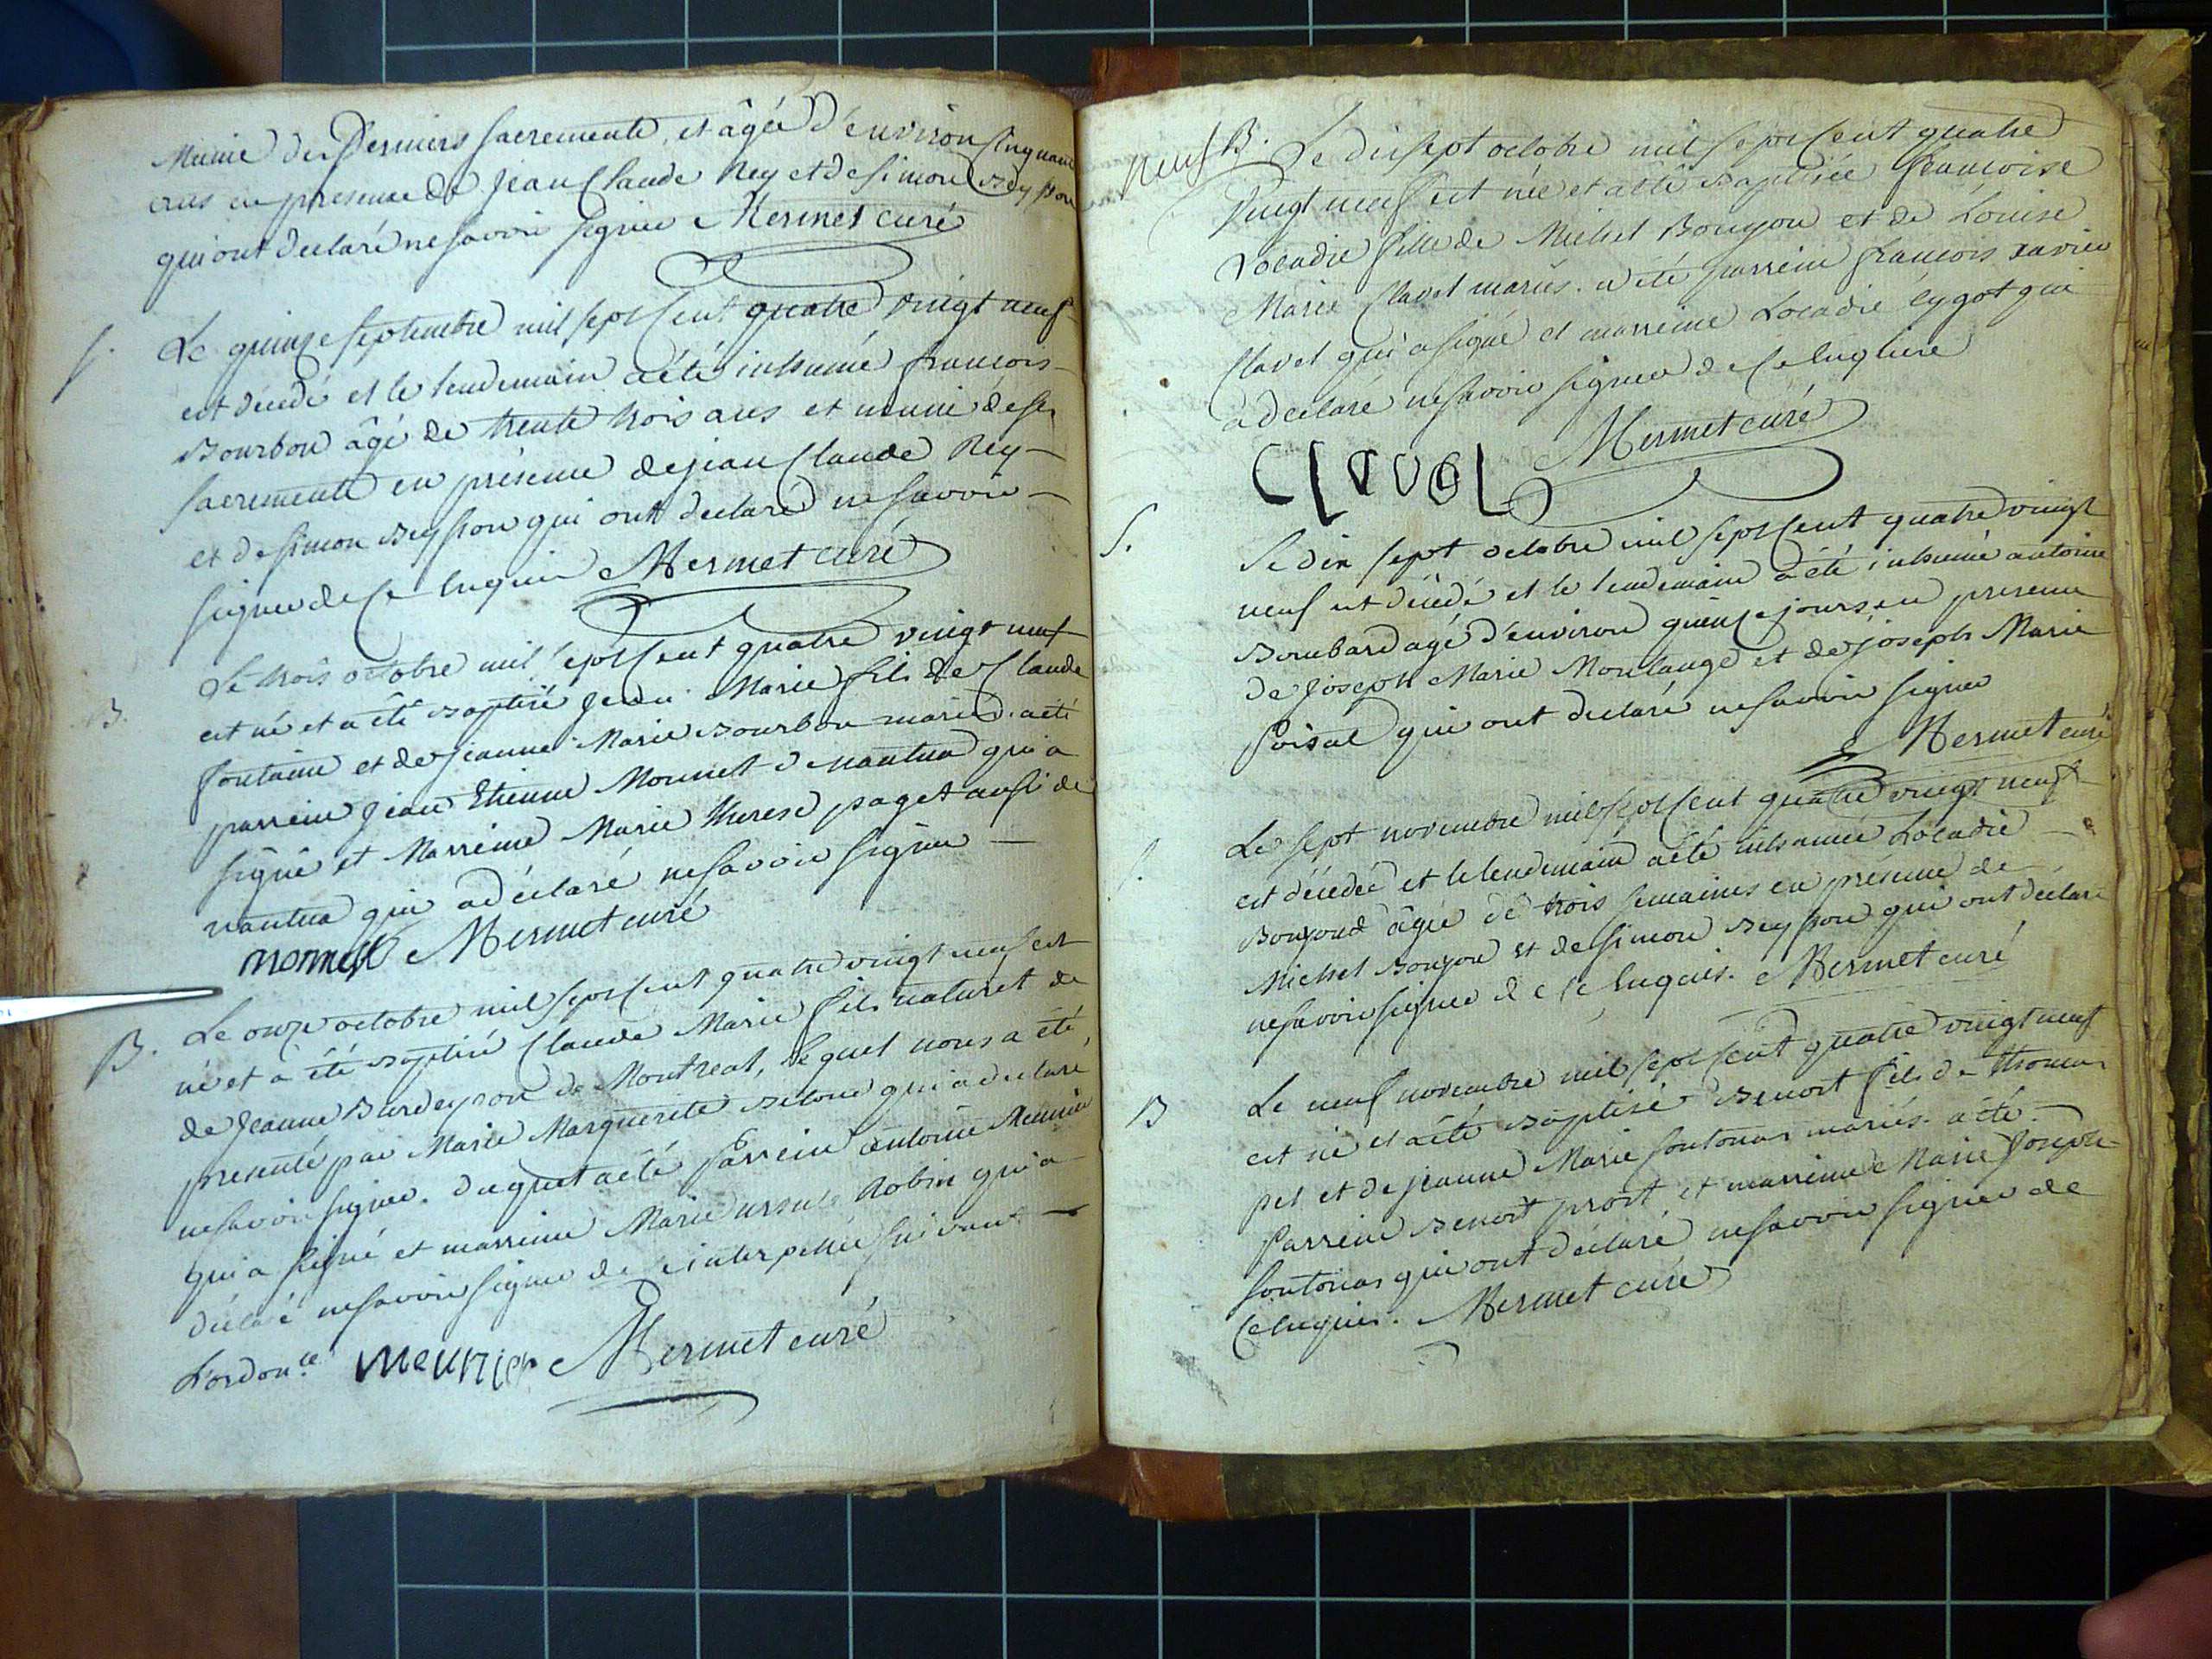 Munie des Derniers sacrements, et âgée d'environ Cinquante
ans en presence de jean Claude Rey et de simon Beysson
qui ont declaré ne savoir signer Mermet curé
S. Le quinze septembre mil sept Cent quatre vingt neuf
est décédé et le lendemain a été inhumé francois
Bourbon âgé de trente trois ans et muni de ses
sacrements en présence de jean Claude Rey
et de simon Beysson qui ont declaré ne savoir
signer de Ce Enquis Mermet curé
B. Le trois octobre mil sept Cent quatre vingt neuf
est né et a été Baptisé jean Marie fils de Claude
fontaine et de jeanne Marie Bourbon mariés. a été
parrein jean Etienne Monnet de nantua qui a
signé et Marreine Marie therese paget aussi de
nantua qui a déclaré ne savoir signer
monnet Mermet curé
B. Le onze octobre mil sept Cent quatre vingt neuf est
né et a été Baptisé Claude Marie fils naturel de
de jeanne de Montreal, lequel nous a été
presenté par Marie Marguerite qui a declaré
ne savoir signer. duquel a été parrein antoine Meunier
qui a signé et marreine Marie ursule Robin qui a
déclaré ne savoir signer de ce interpellée suivant
L'ordon.ce meunier Mermet curé
neuf B. Le dix sept octobre mil sept Cent quatre
vingt neuf est née et a été Baptisée francoise
Locadie fille de Michel Bouyou et de Louise
Marie Clavel mariés. a été parrein francois xavier
Clavel qui a signé et marreine Locadie Cygot qui
a declaré ne savoir signer de Ce
Clavel Mermet curé
S. Le dix sept octobre mil sept Cent quatre vingt
neuf est décédé et le lendemain a été inhumé antoine
Bombard agé d'environ quinze jours en presence
de joseph Marie Montange et de joseph Marie
qui ont declaré ne savoir signer
Mermet curé
S. Le sept novembre mil sept Cent quatre vingt neuf
est décedée et le lendemain a été inhumée Locadie
âgée de trois semaines en présence de
Michel Bouyou et de simon Beysson qui ont déclaré
ne savoir signer de ce Enquis. Mermet curé
B Le neuf novembre mil sept Cent quatre vingt neuf
est né et a été Baptisé Benoit fils de thomas
pet et de jeanne Marie fontonas mariés. a été
Parrein Benoit prost et marreine Marie joseph
fontonas qui ont déclaré ne savoir signer de
Ce Enquis. Mermet curé